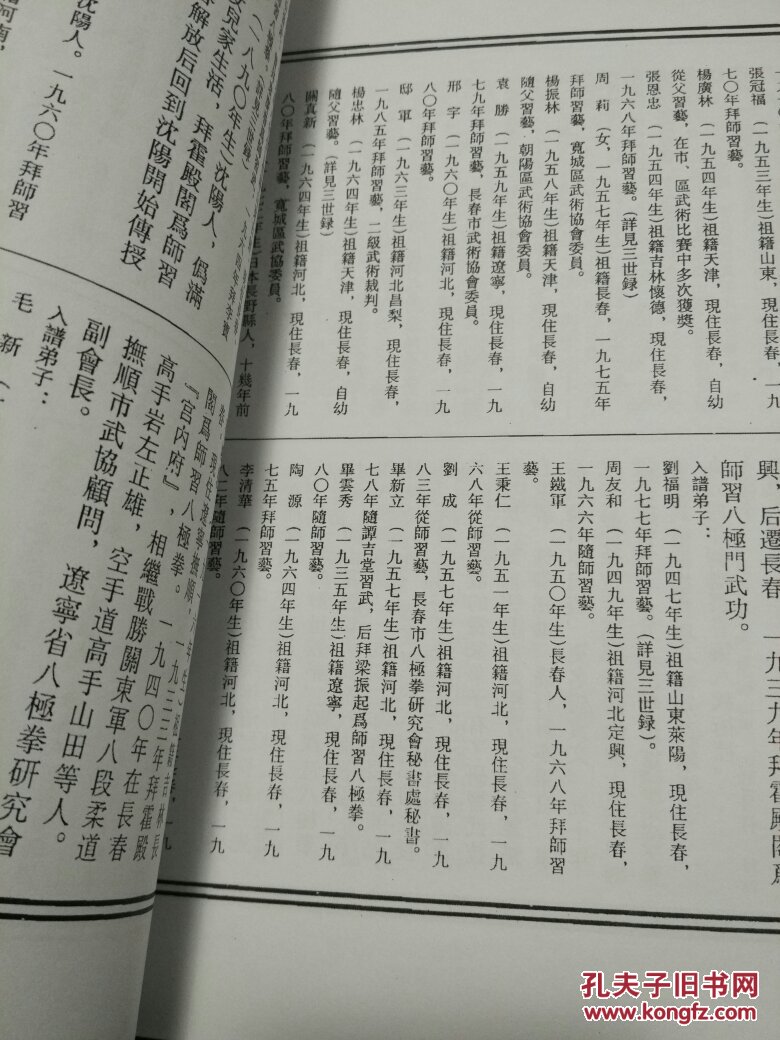 張冠福 (一九五三年生)祖籍山東,現住長春,一九
七〇年拜師習藝。
楊廣林 (一九五四年生)祖籍天津,現住長春,自幼
從父習藝,在市、區武術比賽中多次獲獎。
張恩忠 (一九五四年生)祖籍吉林懷德,現住長春,
一九六八年拜師習藝。(詳見三世録)
周 莉 (女,一九五七年生)祖籍長春,一九七五年
拜師習藝,寬城區武術協會委員。
楊振林 (一九五八年生)祖籍天津,現住長春,自幼
隨父習藝,朝陽區武術協會委員。
袁 勝 (一九五九年生)祖籍遼寧,現住長春,一九
七九年拜師習藝,長春市武術協會委員。
邢 宇 (一九六〇年生)祖籍河北,現住長春,一九
八〇年拜師習藝。
邸 軍 (一九六三年生)祖籍河北昌梨,現住長春,
一九八五年拜師習藝,二級武術裁判。
楊忠林 (一九六四年生)祖籍天津,現住長春,自幼
隨父習藝。(詳見三世録)
關真新 (一九六四年生)祖籍河北,現住長春,一九
八〇年拜師習藝,寬城區武協委員。
年生)日本長野縣人,十幾年前
興,后遷長春,一九三九年拜霍殿閣爲
師習八極門武功。
入譜弟子:
劉福明 (一九四七年生)祖籍山東萊陽,現住長春,
一九七七年拜師習藝。(詳見三世録)。
周友和 (一九四九年生)祖籍河北定興,現住長春,
一九六六年隨師習藝。
王鐵軍 (一九五〇年生)長春人,一九六八年拜師習
藝。
王秉仁 (一九五一年生)祖籍河北,現住長春,一九
六八年從師習藝。
劉 成 (一九五七年生)祖籍河北,現住長春,一九
八三年從師習藝,長春市八極拳研究會秘書處秘書。
畢新立 (一九五七年生)祖籍河北,現住長春,一九
七八年隨譚吉堂習武,后拜梁振起爲師習八極拳。
畢雲秀 (一九三五年生)祖籍遼寧,現住長春,一九
八〇年隨師習藝。
陶 源 (一九六四年生)祖籍河北,現住長春,一九
七五年拜師習藝。
李清華 (一九六〇年生)祖籍河北,現住長春,一九
八二年隨師習藝。
沈陽人。一九六〇年拜師習
解放后回到沈陽開始傳授
兒家生活,拜霍殿閣爲師習
(一八九〇年生)沈陽人,僞滿
現住遼寧撫順
閣爲師習八極拳。一九三三年拜霍殿
『宮內府』,相繼戰勝關東軍八段柔道
高手岩左正雄,空手道高手山田等人。
撫順市武協顧問,遼寧省八極拳研究會
副會長。
入譜弟子:
毛 新 (一
孔夫子旧书网
www.kongfz.com